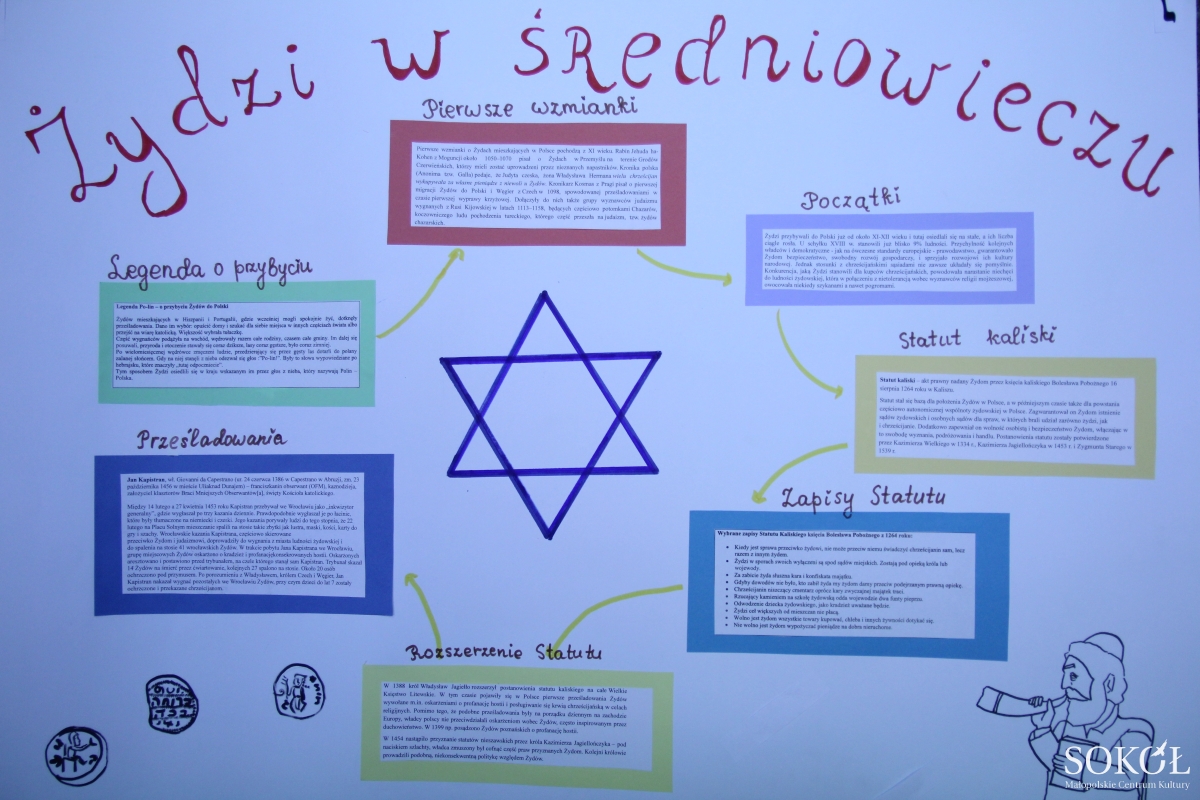 Żydzi w średniowieczu
Pierwsze wzmianki
Pierwsze wzmianki o Żydach mieszkających w Polsce pochodzą z XI wieku. Rabin Jehuda ha-
Kohen z Moguncji około 1050–1070 pisał o Żydach w Przemyślu na terenie Grodów
Czerwieńskich, którzy mieli zostać uprowadzeni przez nieznanych napastników. Kronika polska
(Anonima tzw. Galla) podaje, że Judyta czeska, żona Władysława Hermana wielu chrześcijan
wykupywała za własne pieniądze z niewoli u Żydów. Kronikarz Kosmas z Pragi pisał o pierwszej
migracji Żydów do Polski i Węgier z Czech w 1098, spowodowanej prześladowaniami w
czasie pierwszej wyprawy krzyżowej. Dołączyły do nich także grupy wyznawców judaizmu
wygnanych z Rusi Kijowskiej w latach 1113–1158, będących częściowo potomkami Chazarów,
koczowniczego ludu pochodzenia tureckiego, którego część przeszła na judaizm, tzw. żydów
chazarskich.
Początki
Żydzi przybywali do Polski już od około XI-XII wieku i tutaj osiedlali się na stałe, a ich liczba
ciągle rosła. U schyłku XVIII w. stanowili już blisko 9% ludności. Przychylność kolejnych
władców i demokratyczne - jak na ówczesne standardy europejskie - prawodawstwo, gwarantowało
Żydom bezpieczeństwo, swobodny rozwój gospodarczy, i sprzyjało rozwojowi ich kultury
narodowej. Jednak stosunki z chrześcijańskimi sąsiadami nie zawsze układały się pomyślnie.
Konkurencja, jaką Żydzi stanowili dla kupców chrześcijańskich, powodowała narastanie niechęci
do ludności żydowskiej, która w połączeniu z nietolerancją wobec wyznawców religii mojżeszowej,
owocowała niekiedy szykanami a nawet pogromami.
Legenda o przybyciu
Legenda Po-lin – o przybyciu Żydów do Polski
Żydów mieszkających w Hiszpanii i Portugalii, gdzie wcześniej mogli spokojnie żyć, dotknęły
prześladowania. Dano im wybór: opuścić domy i szukać dla siebie miejsca w innych częściach świata albo
przejść na wiarę katolicką. Większość wybrała tułaczkę.
Część wygnańców podążyła na wschód, wędrowały razem całe rodziny, czasem całe gminy. Im dalej się
posuwali, przyroda i otoczenie stawały się coraz dziksze, lasy coraz gęstsze, było coraz zimniej.
Po wielomiesięcznej wędrówce zmęczeni ludzie, przedzierający się przez gęsty las dotarli do polany
zalanej słońcem. Gdy na niej stanęli z nieba odezwał się głos :"Po-lin!". Były to słowa wypowiedziane po
hebrajsku, które znaczyły „tutaj odpoczniecie".
Tym sposobem Żydzi osiedlili się w kraju wskazanym im przez głos z nieba, który nazywają Polin –
Polska.
Statut kaliski
Statut kaliski – akt prawny nadany Żydom przez księcia kaliskiego Bolesława Pobożnego 16
sierpnia 1264 roku w Kaliszu.
Statut stał się bazą dla położenia Żydów w Polsce, a w późniejszym czasie także dla powstania
częściowo autonomicznej wspólnoty żydowskiej w Polsce. Zagwarantował on Żydom istnienie
sądów żydowskich i osobnych sądów dla spraw, w których brali udział zarówno żydzi, jak
i chrześcijanie. Dodatkowo zapewniał on wolność osobistą i bezpieczeństwo Żydom, włączając w
to swobodę wyznania, podróżowania i handlu. Postanowienia statutu zostały potwierdzone
przez Kazimierza Wielkiego w 1334 r., Kazimierza Jagiellończyka w 1453 r. i Zygmunta Starego w
1539 r.
Prześladowania
Jan Kapistran, wł. Giovanni da Capestrano (ur. 24 czerwca 1386 w Capestrano w Abruzji, zm. 23
października 1456 w mieście Uilak) – franciszkanin obserwant (OFM), kaznodzieja,
założyciel klasztorów Braci Mniejszych Obserwantów[a], święty Kościoła katolickiego.
Między 14 lutego a 27 kwietnia 1453 roku Kapistran przebywał we Wrocławiu jako „inkwizytor
generalny", gdzie wygłaszał po trzy kazania dziennie. Prawdopodobnie wygłaszał je po łacinie,
które były tłumaczone na niemiecki i czeski. Jego kazania porywały ludzi do tego stopnia, że 22
lutego na Placu Solnym mieszczanie spalili na stosie takie zbytki jak lustra, maski, kości, karty do
gry i szachy. Wrocławskie kazania Kapistrana, częściowo skierowane
przeciwko Żydom i judaizmowi, doprowadziły do wygnania z miasta ludności żydowskiej i
do spalenia na stosie 41 wrocławskich Żydów. W trakcie pobytu Jana Kapistrana we Wrocławiu,
grupę miejscowych Żydów oskarżono o kradzież i profanację konsekrowanych hostii. Oskarżonych
aresztowano i postawiono przed trybunałem, na czele którego stanął sam Kapistran. Trybunał skazał
14 Żydów na śmierć przez ćwiartowanie, kolejnych 27 spalono na stosie. Około 20 osób
ochrzczono pod przymusem. Po porozumieniu z Władysławem, królem Czech i Węgier, Jan
Kapistran nakazał wygnać pozostałych we Wrocławiu Żydów, przy czym dzieci do lat 7 zostały
ochrzczone i przekazane chrześcijanom.
Zapisy Statutu
Wybrane zapisy Statutu Kaliskiego księcia Bolesława Pobożnego z 1264 roku:
• Kiedy jest sprawa przeciwko żydowi, nie może przeciw niemu świadczyć chrześcijanin sam, lecz
razem z innym żydem.
• Żydzi w sporach swoich wyłączeni są spod sądów miejskich. Zostają pod opieką króla lub
wojewody.
• Za zabicie żyda słuszna kara i konfiskata majątku.
• Gdyby dowodów nie było, kto zabił żyda my żydom damy przeciw podejrzanym prawną opiekę.
• Chrześcijanin niszczący cmentarz oprócz kary zwyczajnej majątek traci.
• Rzucający kamieniem na szkołę żydowską odda wojewodzie dwa funty pieprzu.
• Odwodzenie dziecka żydowskiego, jako kradzież uważane będzie.
• Żydzi ceł większych od mieszczan nie płacą.
• Wolno jest żydom wszystkie towary kupować, chleba i innych żywności dotykać się.
• Nie wolno jest żydom wypożyczać pieniądze na dobra nieruchome
Rozszerzenie Statutu
W 1388 król Władysław Jagiełło rozszerzył postanowienia statutu kaliskiego na całe Wielkie
Księstwo Litewskie. W tym czasie pojawiły się w Polsce pierwsze prześladowania Żydów
wywołane m.in. oskarżeniami o profanację hostii i posługiwanie się krwią chrześcijańską w celach
religijnych. Pomimo tego, że podobne prześladowania były na porządku dziennym na zachodzie
Europy, władcy polscy nie przeciwdziałali oskarżeniom wobec Żydów, często inspirowanym przez
duchowieństwo. W 1399 np. posądzono Żydów poznańskich o profanację hostii.
W 1454 nastąpiło przyznanie statutów nieszawskich przez króla Kazimierza Jagiellończyka – pod
naciskiem szlachty, władca zmuszony był cofnąć część praw przyznanych Żydom. Kolejni królowie
prowadzili podobną, niekonsekwentną politykę względem Żydów.
SOKÓŁ
Małopolskie Centrum Kultury